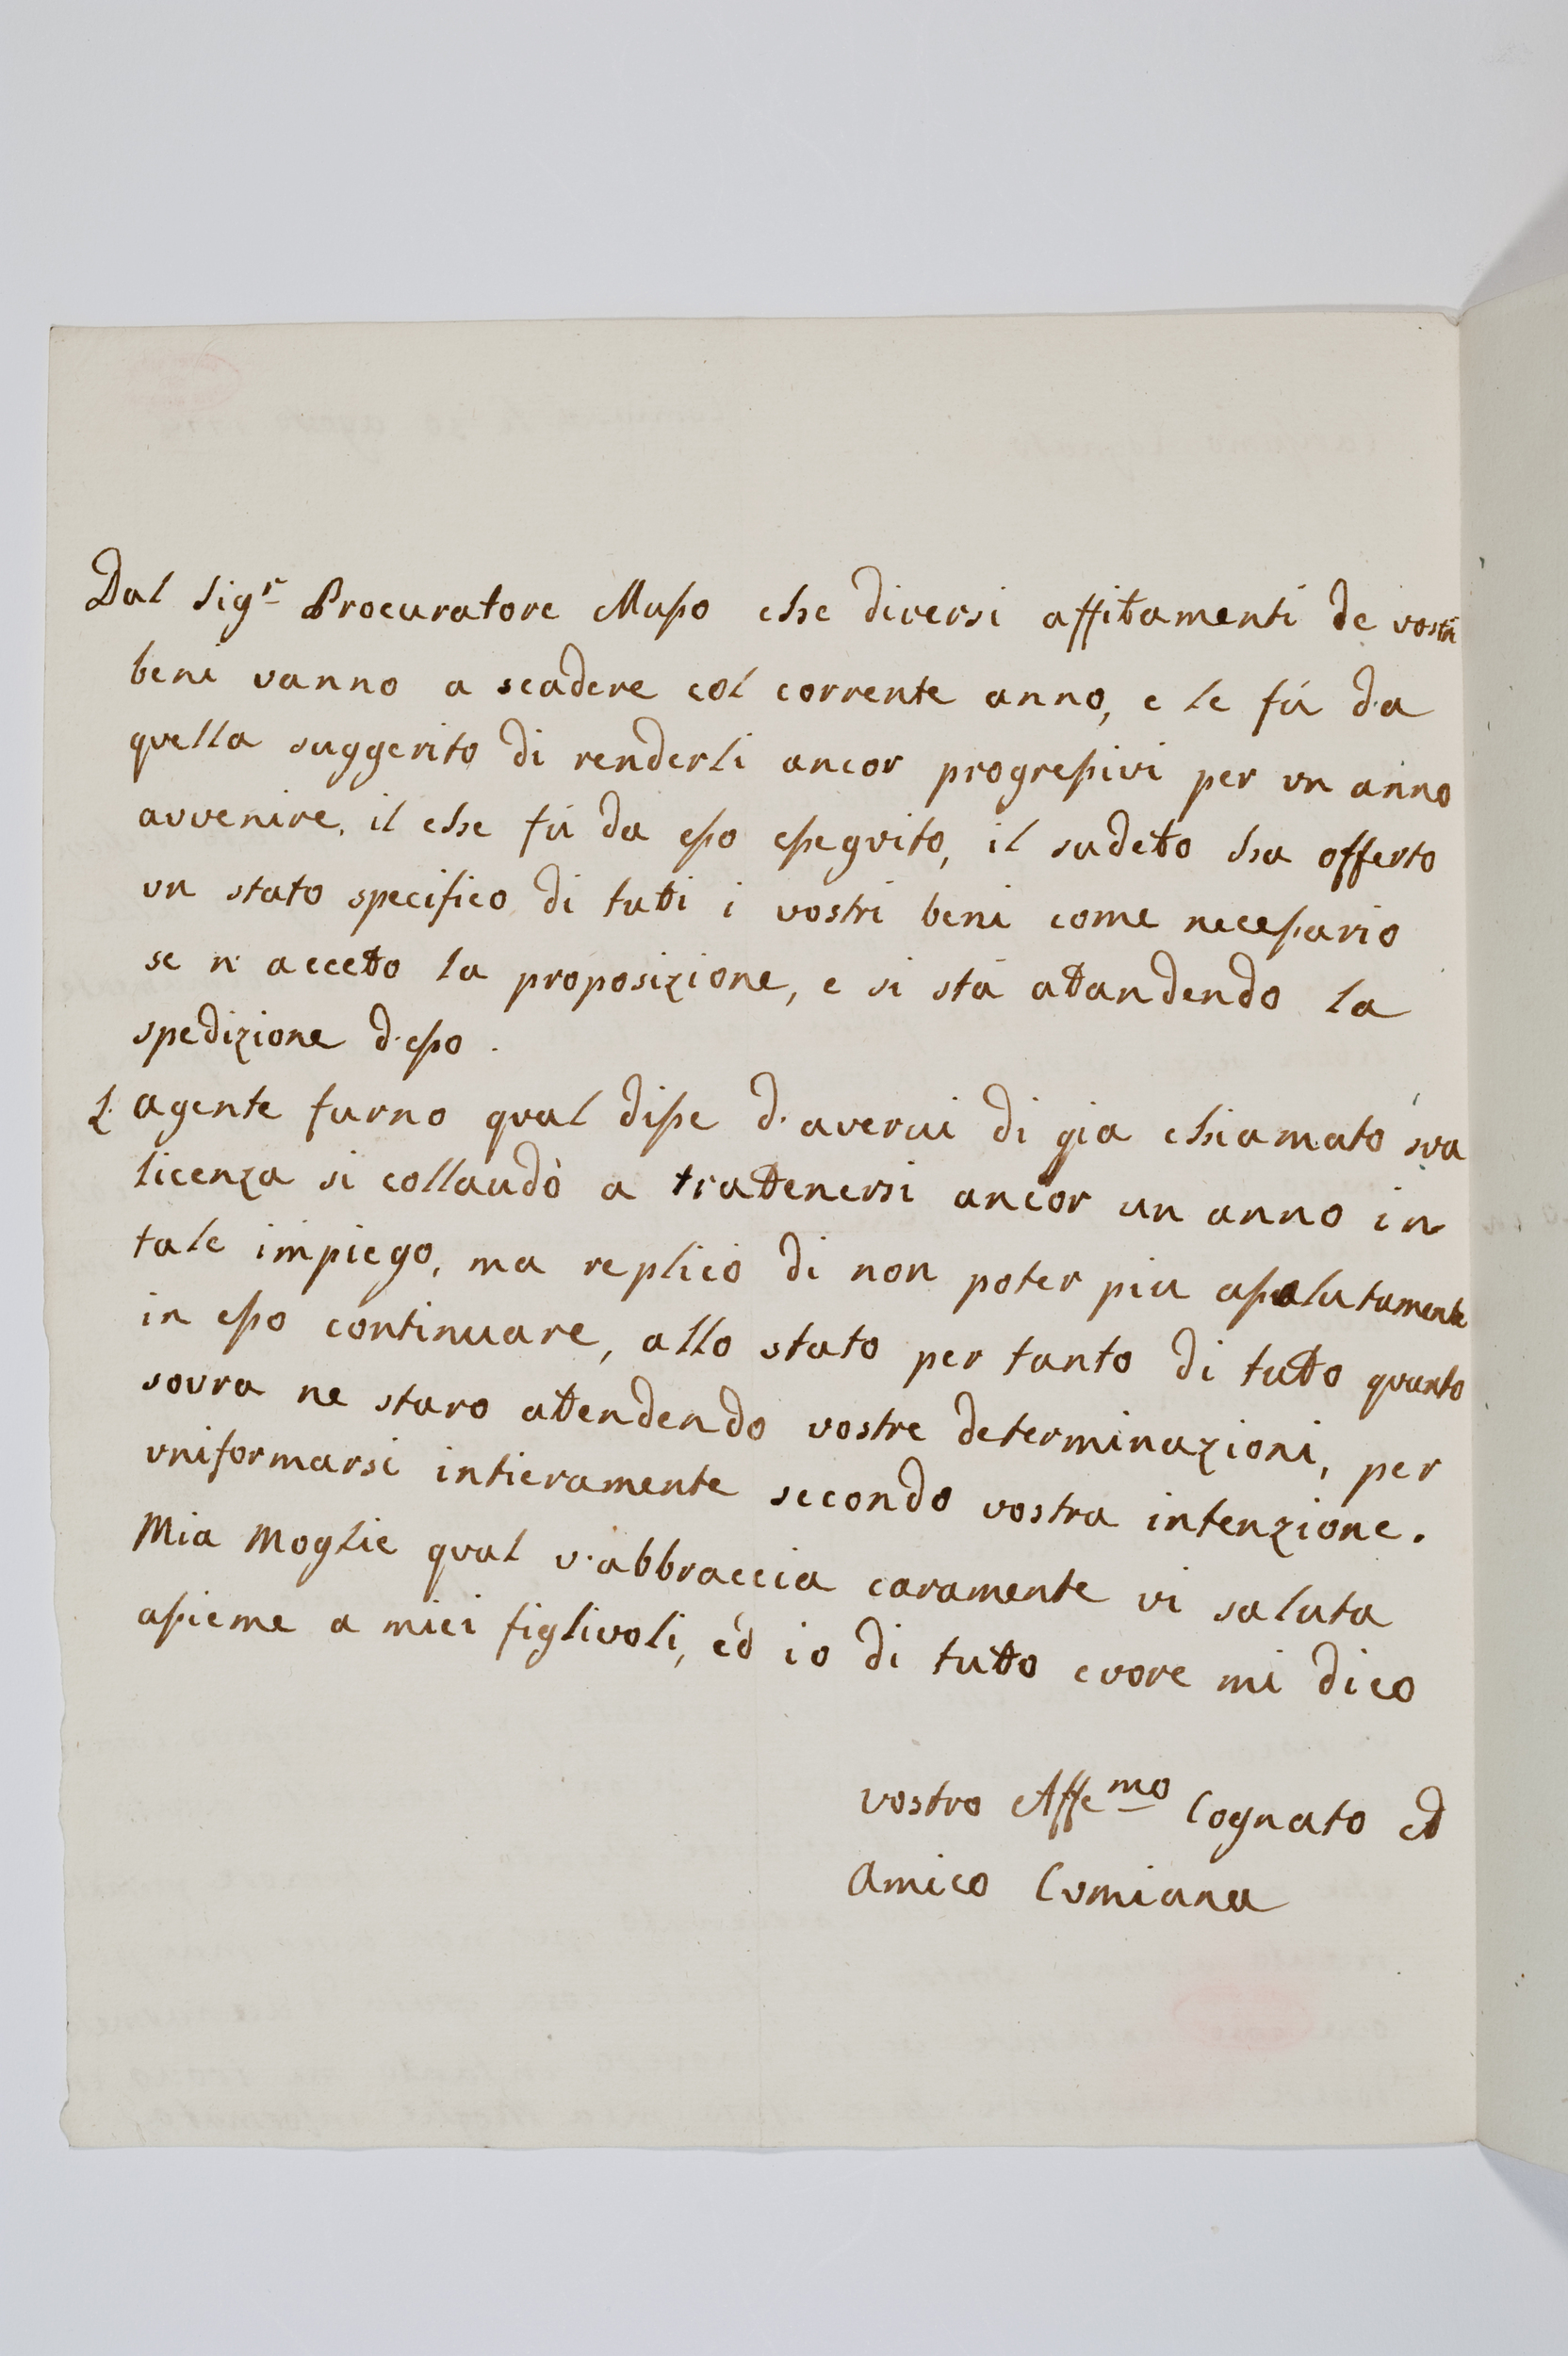 Dal Sig.r Procuratore Musso che diversi affittamenti de vostri
beni vanno a scadere col corrente anno, e le fú da
quella suggerito di renderli ancor progressivi per vn anno
avvenire, il che fú da esso esseguito, il sudetto ha offerto
vn stato specifico di tutti i vostri beni come necessario
se n'accettò la proposizione, e si stà attandendo la
spedizione d'esso.
L'agente furno qual disse d'avervi di già chiamato sva
licenza si collaudò a trattenersi ancor un anno in
tale impiego, ma replicò di non poter piu assolutamente
in esso continuare, allo stato per tanto di tutto qvanto
sovra ne staro attendendo vostre determinazioni, per
vniformarsi intieramente secondo vostra intenzione.
Mia Moglie qval v'abbraccia caramente vi saluta
assieme a miei figlivoli, ed io di tutto cvore mi dico
vostro Affe.mo Cognato ed
Amico Cvmiana